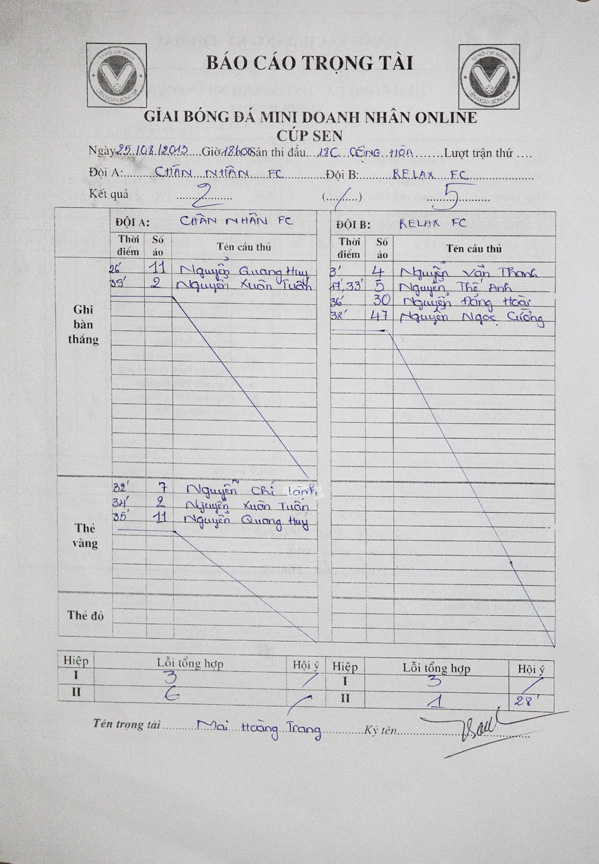 BÁO CÁO TRỌNG TÀI
GIẢI BÓNG ĐÁ MINI DOANH NHÂN ONLINE
CÚP SEN
Ngày 25/08/2013 Giờ 18h00 Sân thi đấu 18C CỘNG HÒA Lượt trận thứ ....
Đội A: CHÂN NHÂN FC Đội B: RELAX FC
Kết quả 2 (..../....) 5
ĐỘI A: CHÂN NHÂN FC ĐỘI B: RELAX FC
Thời điểm Số áo Tên cầu thủ Thời điểm Số áo Tên cầu thủ
Ghi bàn thắng
26' 11 Nguyễn Quang Huy 3' 4 Nguyễn Văn Thanh
39' 2 Nguyễn Xuân Tuấn 17', 33' 5 Nguyễn Thế Anh
36' 30 Nguyễn Đăng Hoài
38' 47 Nguyễn Ngọc Cường
Thẻ vàng
32' 7 Nguyễn Chí Lành
34' 2 Nguyễn Xuân Tuấn
35' 11 Nguyễn Quang Huy
Thẻ đỏ
Hiệp Lỗi tổng hợp Hội ý Hiệp Lỗi tổng hợp Hội ý
I 3 / I 3 /
II 6 / II 1 28'
Tên trọng tài Mai Hoàng Trang Ký tên